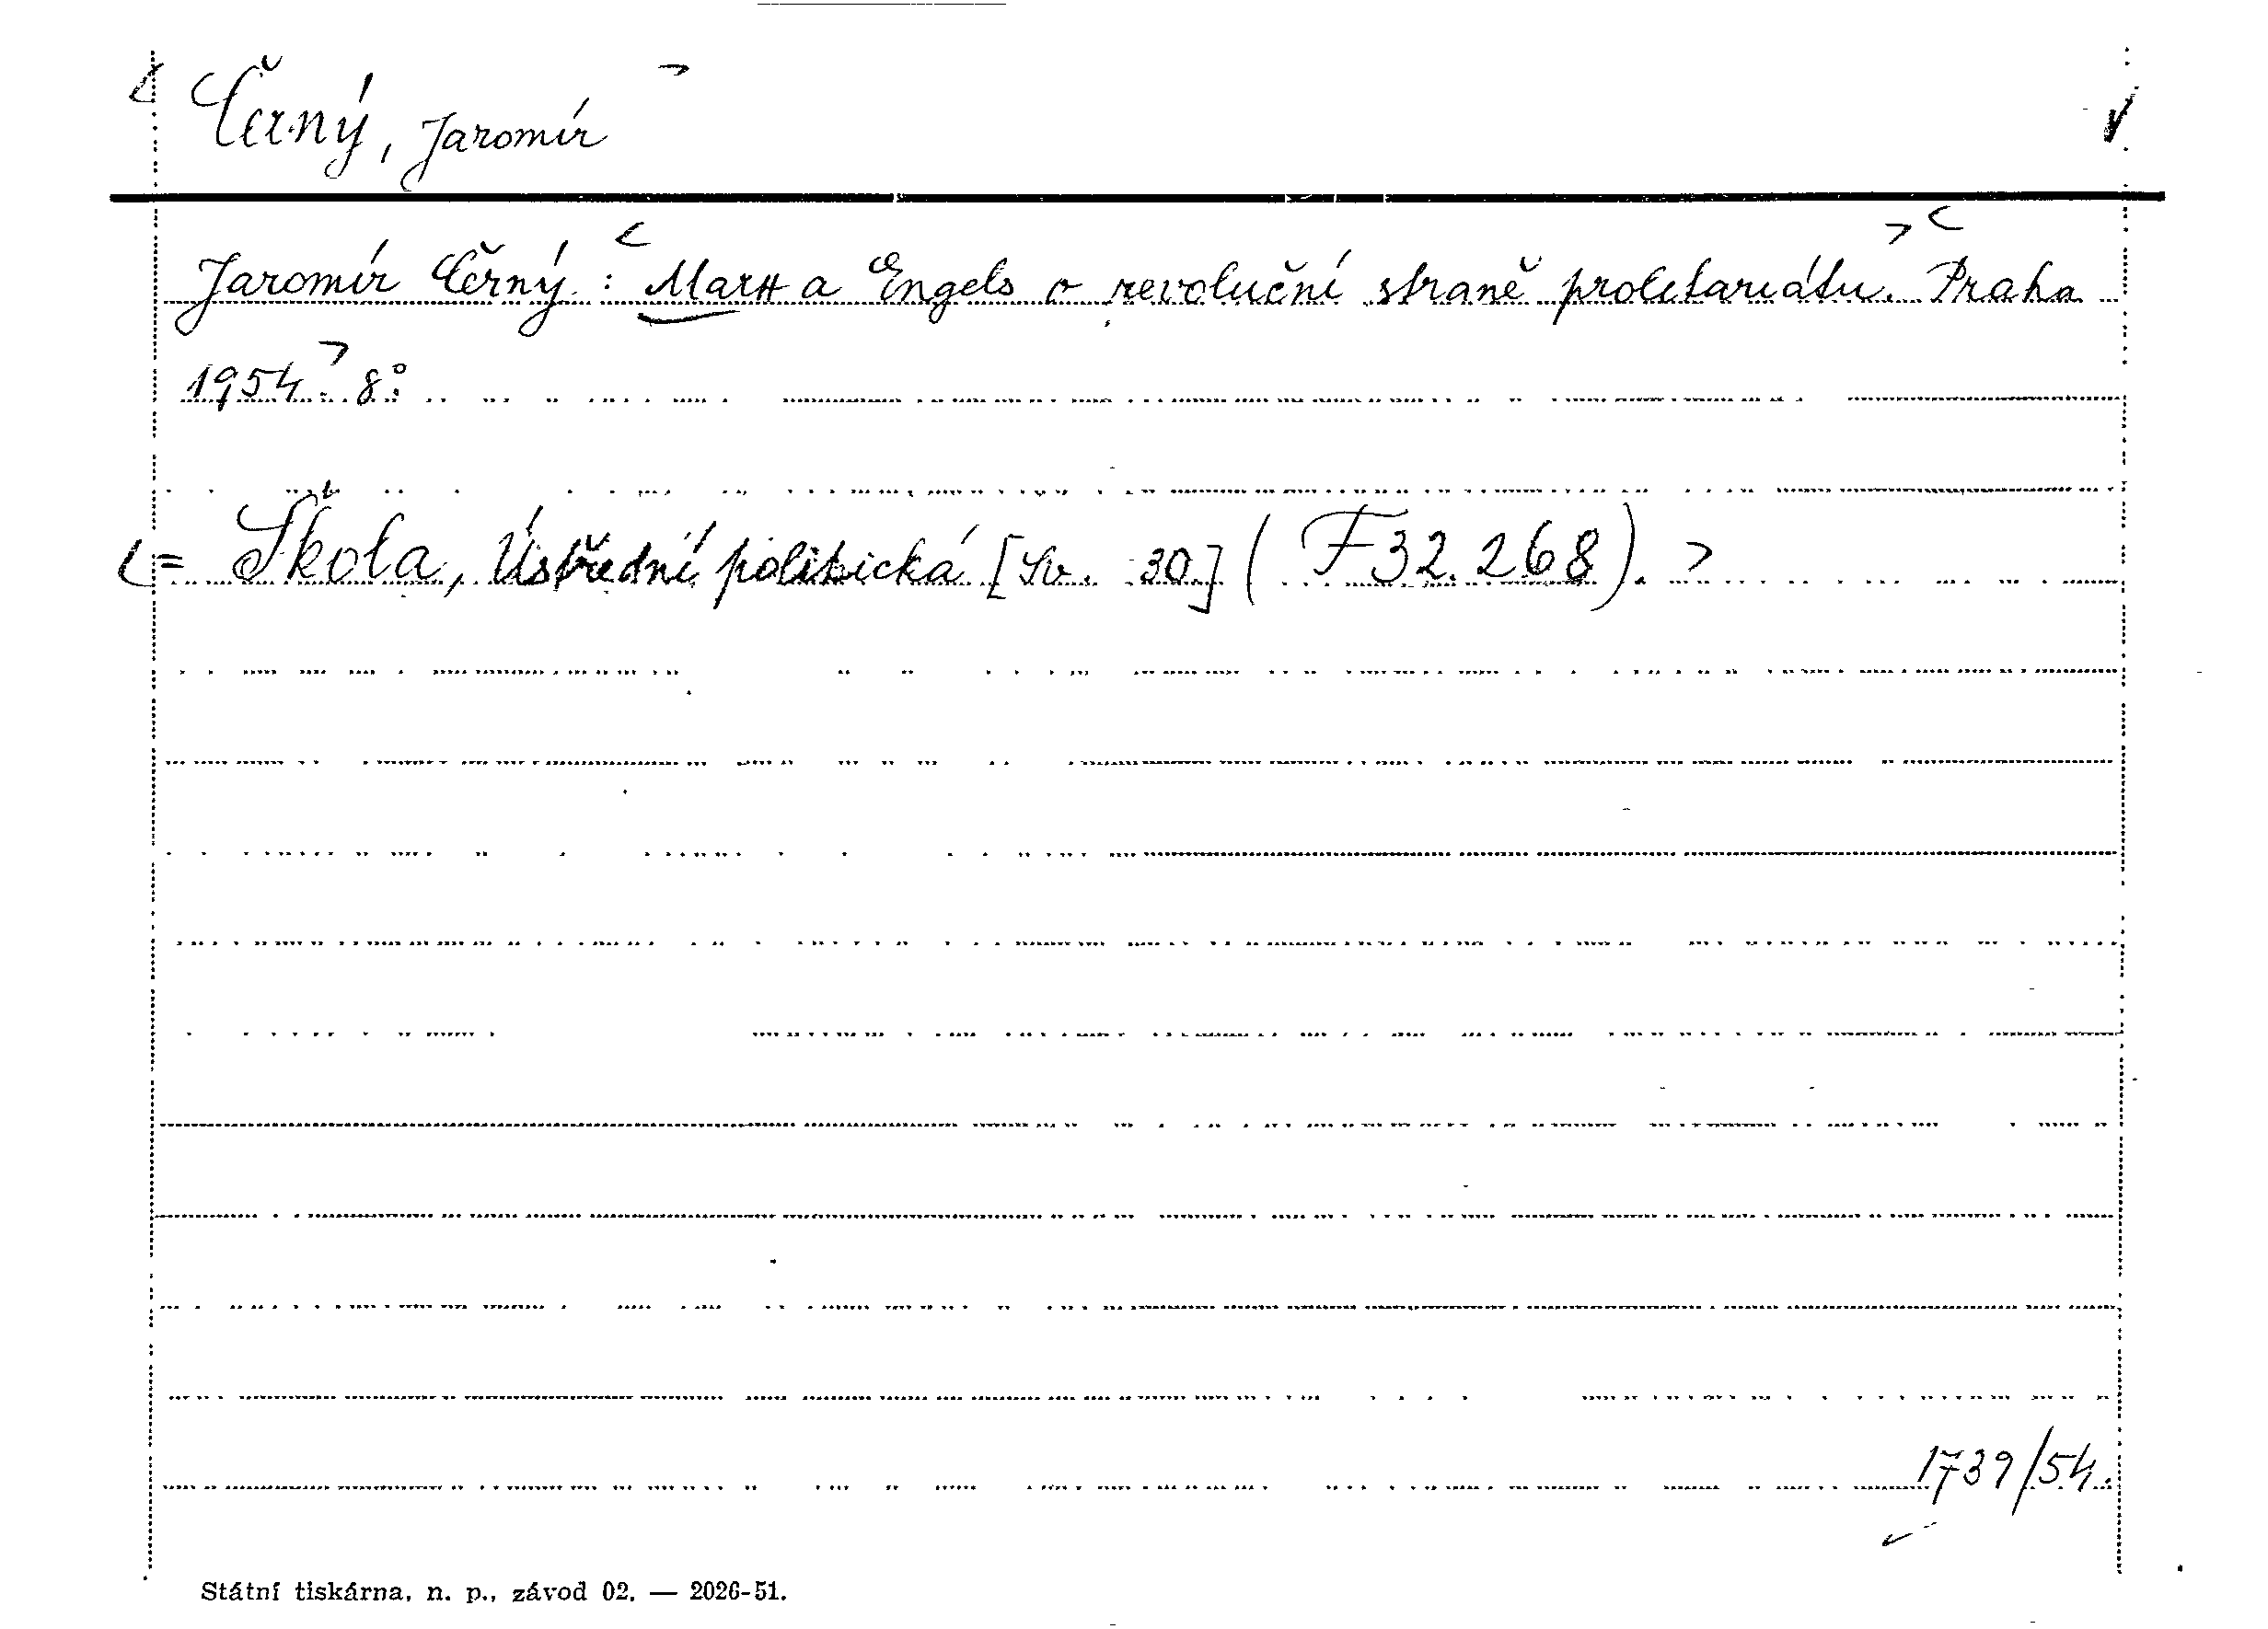 < Černý, Jaromír >
Jaromír Černý: < Marx a Engels o revoluční straně proletariátu. > < Praha
1954. > 8°.
< = Škola, Ústřední politická [Sv. 30] ( F 32.268). >
1739/54.
Státní tiskárna, n. p., závod 02. — 2026-51.